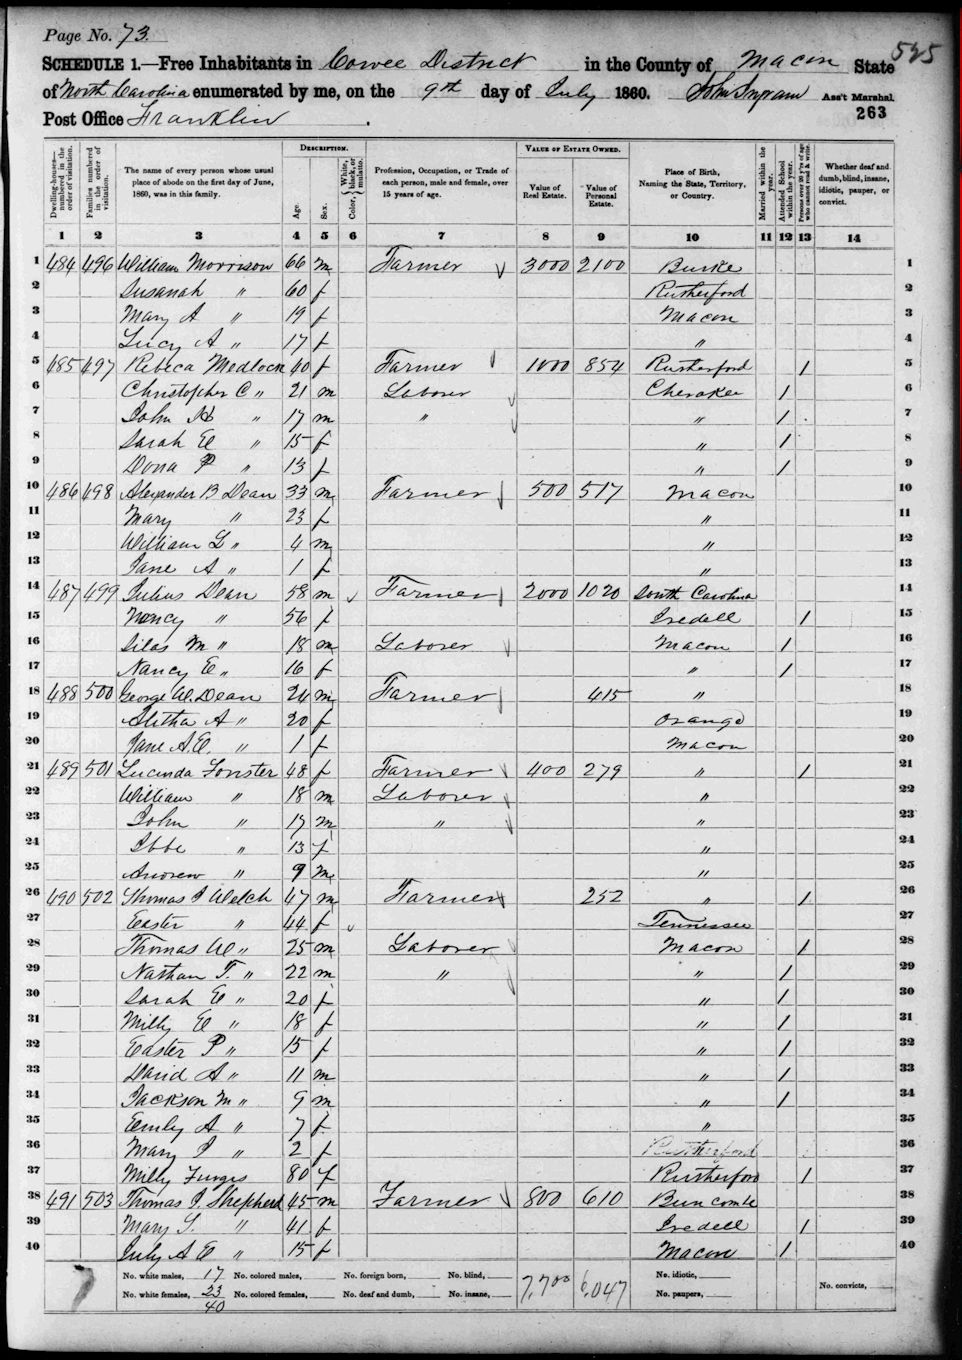 Page No. 73.
525
SCHEDULE 1.—Free Inhabitants in Cowee District in the County of Macon State
of North Carolina enumerated by me, on the 9th day of July 1860. John Ingram Ass't Marshal.
Post Office Franklin . 263
DESCRIPTION. VALUE OF ESTATE OWNED.
Dwelling-houses—numbered in the order of visitation. Families numbered in the order of visitation. The name of every person whose usual place of abode on the first day of June, 1860, was in this family. Age. Sex. Color, { White, black, or mulatto. Profession, Occupation, or Trade of each person, male and female, over 15 years of age. Value of Real Estate. Value of Personal Estate. Place of Birth, Naming the State, Territory, or Country. Married within the year. Attended School within the year. Persons over 20 y'rs of age who cannot read & write. Whether deaf and dumb, blind, insane, idiotic, pauper, or convict.
1 2 3 4 5 6 7 8 9 10 11 12 13 14
1 484 496 William Morrison 66 m Farmer 3000 2100 Burke 1
2 Susanah " 60 f Rutherford 2
3 Mary A " 19 f Macon 3
4 Lucy A " 17 f " 4
5 485 497 Rebeca Medlock 40 f Farmer 1000 854 Rutherford 1 5
6 Christopher C " 21 m Laborer Cherokee 1 6
7 John " 17 m " " 1 7
8 Sarah E " 15 f " 1 8
9 Dona P " 13 f " 1 9
10 486 498 Alexander B Dean 33 m Farmer 500 517 Macon 10
11 Mary " 23 f " 11
12 William L " 4 m " 12
13 Jane A " 1 f " 13
14 487 499 Julius Dean 58 m Farmer 2000 1020 South Carolina 14
15 Nancy " 56 f Iredell 1 15
16 Silas M " 18 m Laborer Macon 1 16
17 Nancy E " 16 f " 1 17
18 488 500 George W. Dean 24 m Farmer 415 " 18
19 Alitha A " 20 f Orange 19
20 Jane A. E. " 1 f Macon 20
21 489 501 Lucinda 48 f Farmer 400 279 " 1 21
22 William " 18 m Laborer " 22
23 John " 17 m " " 23
24 " 13 f " 24
25 Andrew " 9 m " 25
26 490 502 Thomas J Welch 47 m Farmer 252 " 1 26
27 Easter " 44 f Tennessee 27
28 Thomas W " 25 m Laborer Macon 1 28
29 Nathan T. " 22 m " " 1 29
30 Sarah E " 20 f " 1 30
31 Milly E " 18 f " 1 31
32 Easter P " 15 f " 1 32
33 David A " 11 m " 1 33
34 Jackson M " 9 m " 1 34
35 Emily A " 7 f " 35
36 Mary J " 2 f Rutherford 36
37 Milly 80 f Rutherford 1 37
38 491 503 Thomas J. Shepherd 45 m Farmer 800 610 Buncombe 38
39 Mary S. " 41 f Iredell 1 39
40 July A E " 15 f Macon 1 40
No. white males, 17 No. colored males, No. foreign born, No. blind, 7,700 6,047 No. idiotic,
No. white females, 23 No. colored females, No. deaf and dumb, No. insane, No. paupers, No. convicts,
40